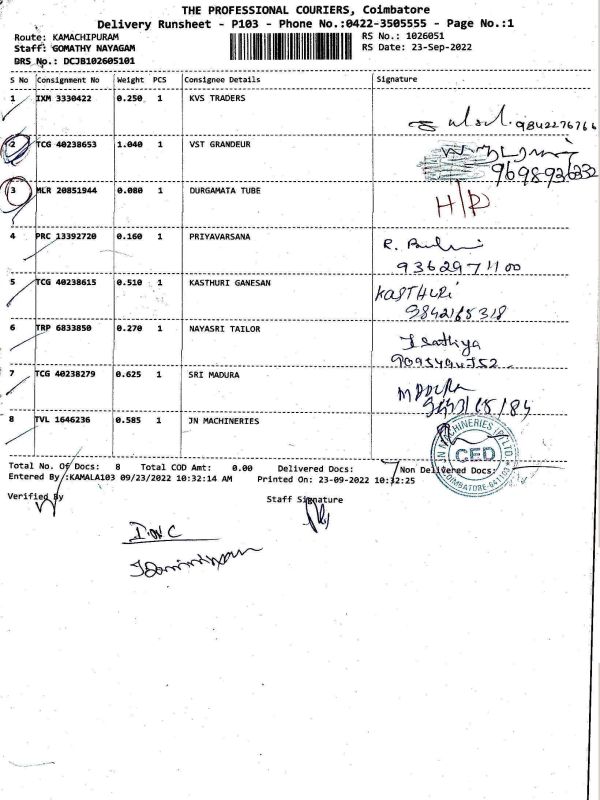 THE PROFESSIONAL COURIERS, Coimbatore
Delivery Runsheet - P103 - Phone No.:0422-3505555 - Page No.:1
Route: KAMACHIPURAM RS No.: 1026051
Staff: GOMATHY NAYAGAM RS Date: 23-Sep-2022
DRS No.: DCJB102605101
S No Consignment No Weight PCS Consignee Details Signature
1 IXM 3330422 0.250 1 KVS TRADERS
9842276766
2 TCG 40238653 1.040 1 VST GRANDEUR
9698936332
3 MLR 20851944 0.080 1 DURGAMATA TUBE
H/D
4 PRC 13392720 0.160 1 PRIYAVARSANA
R.
9362971100
5 TCG 40238615 0.510 1 KASTHURI GANESAN
KASTHURI
9842165318
6 TRP 6833850 0.270 1 NAYASRI TAILOR
7 TCG 40238279 0.625 1 SRI MADURA
8 TVL 1646236 0.585 1 JN MACHINERIES
JN MACHINERIES (P) LTD.
CED
COIMBATORE-641103
Total No. Of Docs: 8 Total COD Amt: 0.00 Delivered Docs: 7 Non Delivered Docs:
Entered By :KAMALA103 09/23/2022 10:32:14 AM Printed On: 23-09-2022 10:32:25
Verified By Staff Signature